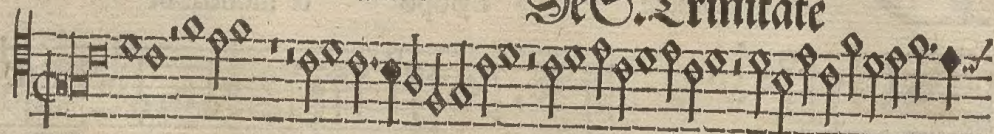 De S. Trinitate